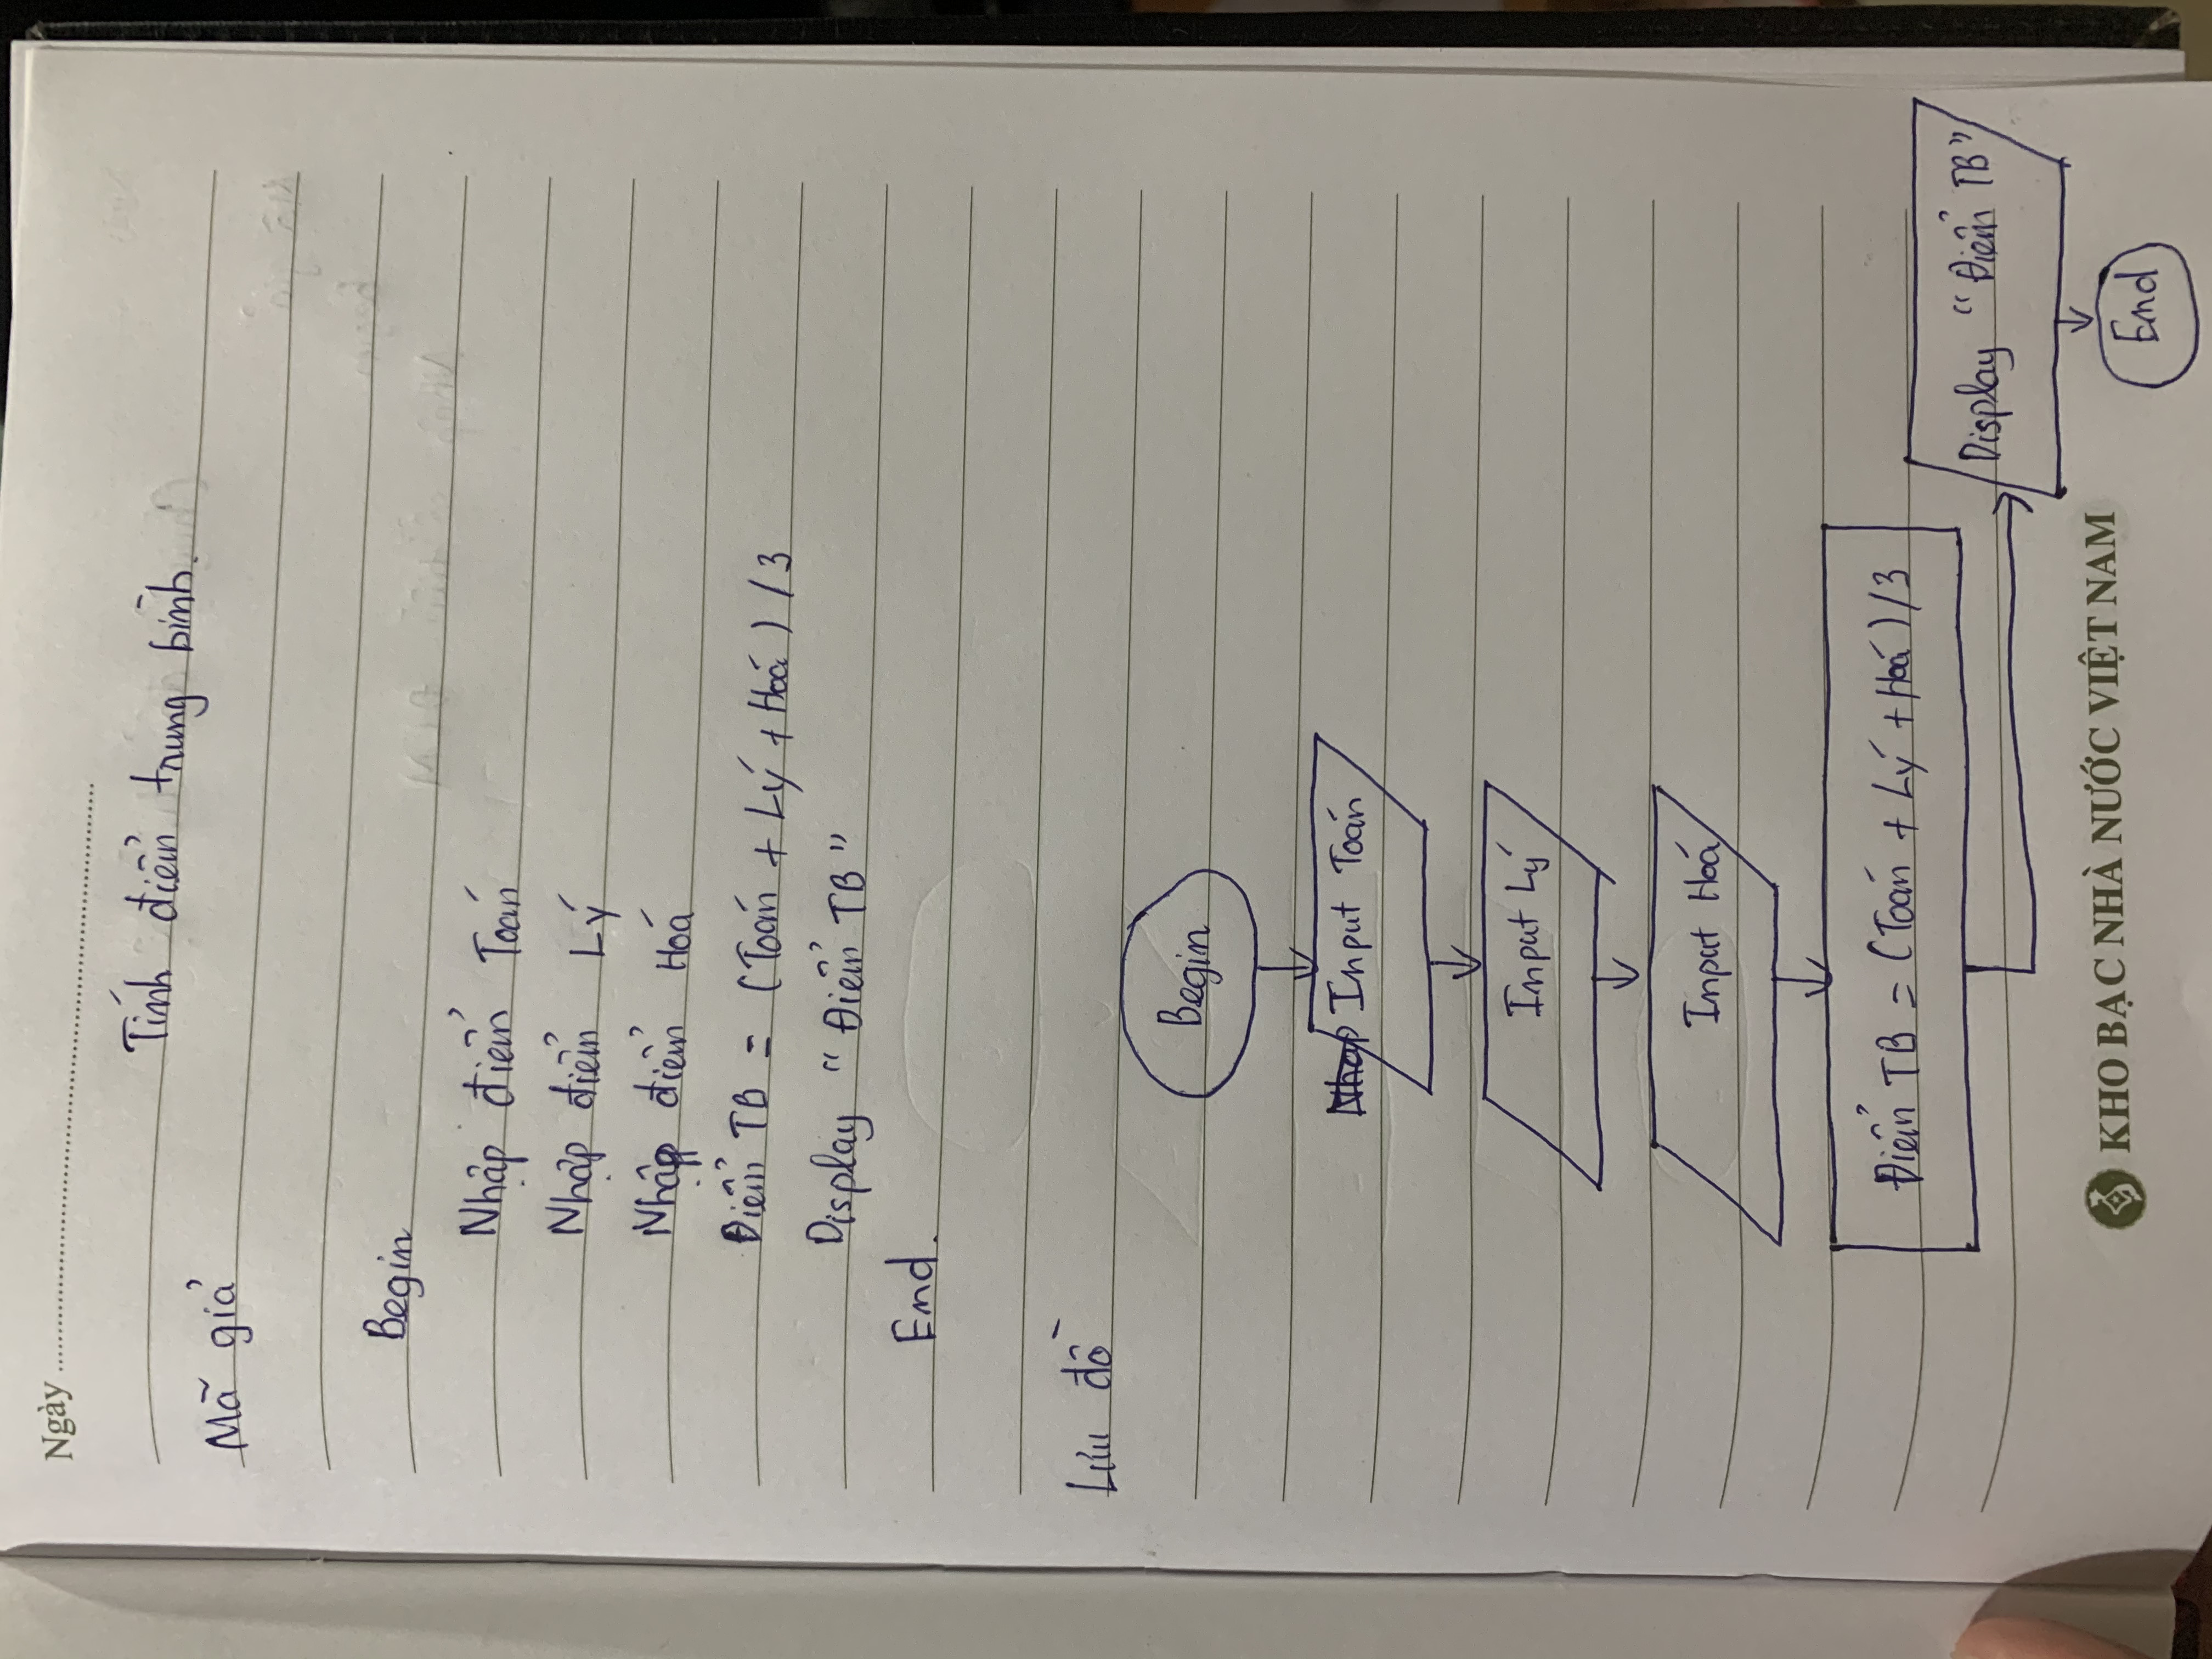 Ngày
Tính điểm trung bình.
Mã giả
Begin
Nhập điểm Toán
Nhập điểm Lý
Nhập điểm Hoá
Điểm TB = (Toán + Lý + Hoá) / 3
Display “Điểm TB”
End.
Lưu đồ
Begin
Input Toán
Input Lý
Input Hoá
Điểm TB = (Toán + Lý + Hoá) / 3
Display “Điểm TB”
End
KHO BẠC NHÀ NƯỚC VIỆT NAM